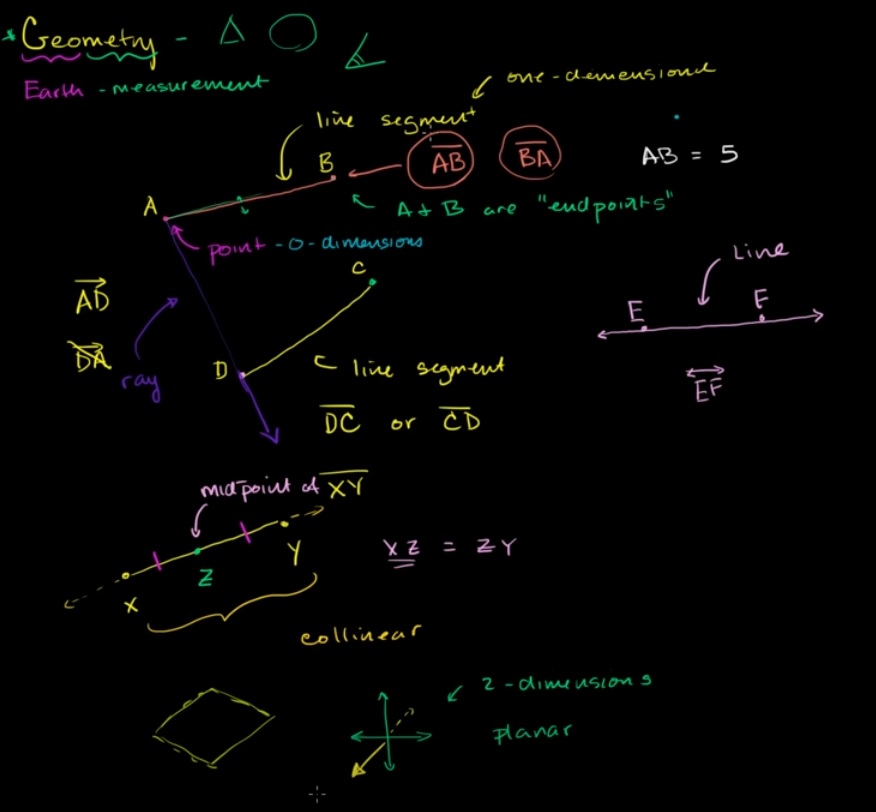 * Geometry -
Earth - measurement
one-dimensional
line segment
A
B
AB
BA
AB = 5
A + B are "endpoints"
point - 0 - dimensions
C
Line
E
F
AD
DA
ray
D
line segment
DC or CD
EF
midpoint of XY
X
Z
Y
XZ = ZY
collinear
2-dimensions
planar